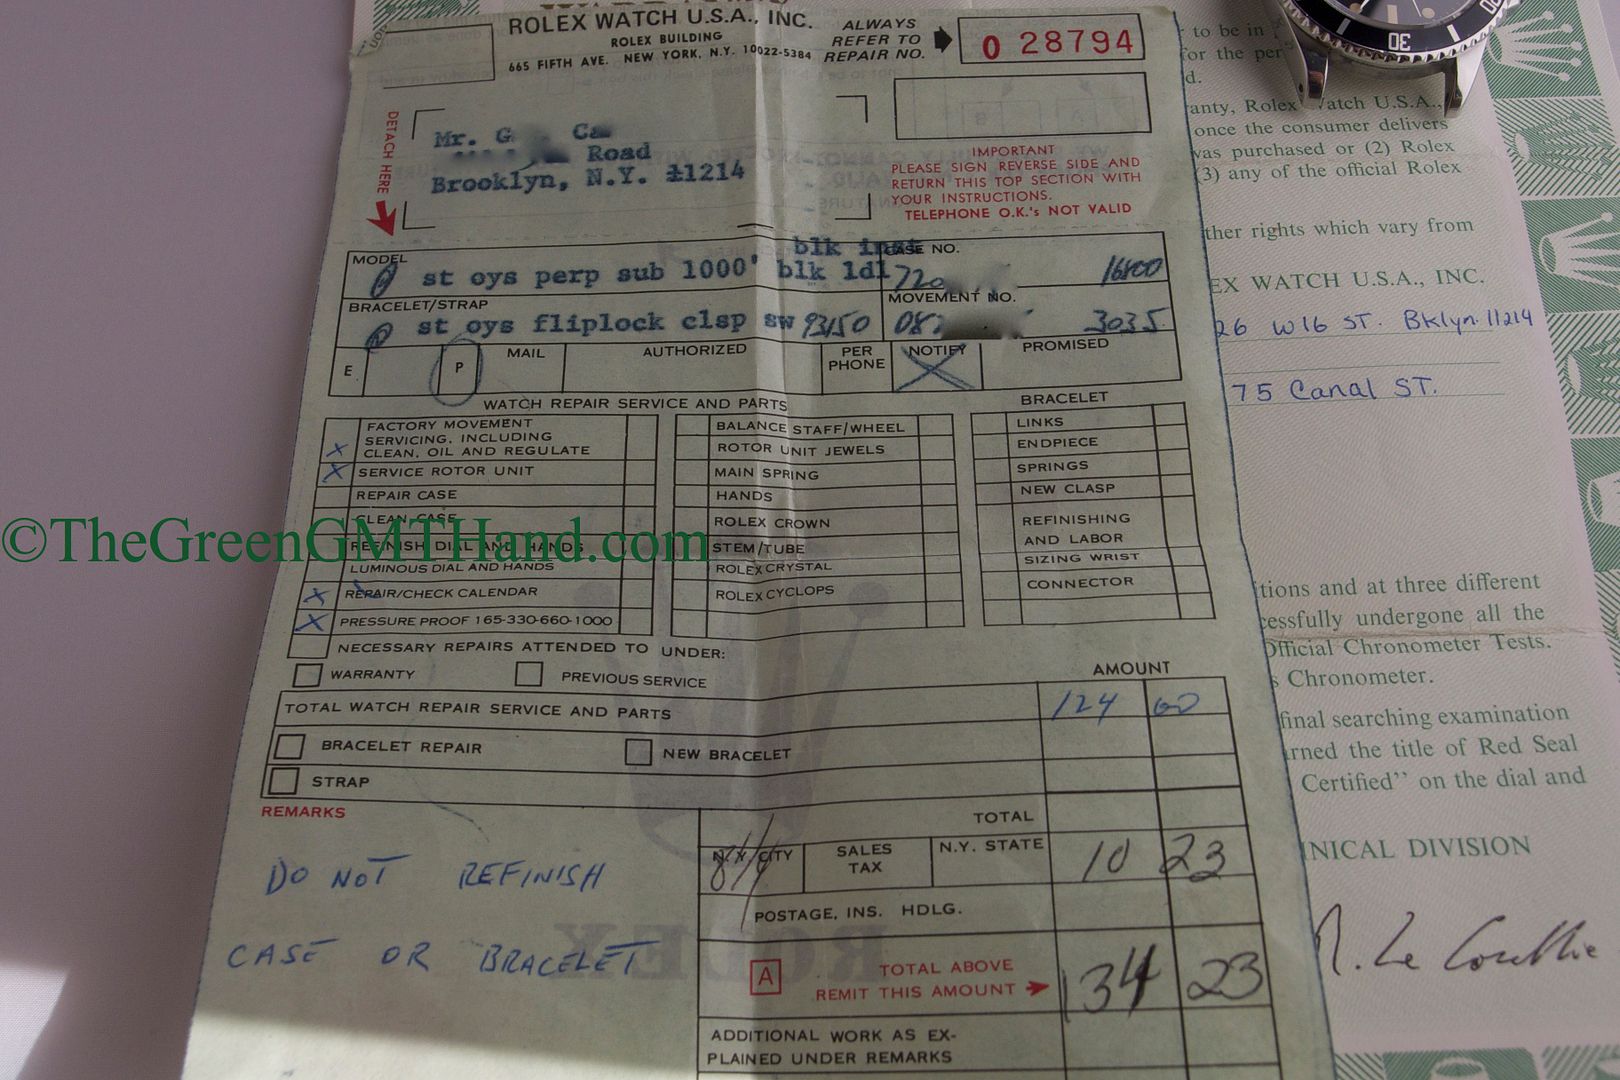 ROLEX WATCH U.S.A., INC.
ROLEX BUILDING
665 FIFTH AVE. NEW YORK, N.Y. 10022-5384
ALWAYS
REFER TO
REPAIR NO.
0 28794
DETACH HERE
Mr. G
Road
Brooklyn, N.Y. 11214
IMPORTANT
PLEASE SIGN REVERSE SIDE AND
RETURN THIS TOP SECTION WITH
YOUR INSTRUCTIONS.
TELEPHONE O.K.'s NOT VALID
MODEL
blk inst
st oys perp sub 1000' blk ldl
CASE NO.
720 16800
BRACELET/STRAP
st oys fliplock clsp sw 93150
MOVEMENT NO.
082 3035
E
P
MAIL
AUTHORIZED
PER
PHONE
NOTIFY
PROMISED
WATCH REPAIR SERVICE AND PARTS
BRACELET
X FACTORY MOVEMENT
SERVICING, INCLUDING
CLEAN, OIL AND REGULATE
X SERVICE ROTOR UNIT
REPAIR CASE
CLEAN CASE
REFINISH DIAL AND HANDS
LUMINOUS DIAL AND HANDS
X REPAIR/CHECK CALENDAR
X PRESSURE PROOF 165-330-660-1000
BALANCE STAFF/WHEEL
ROTOR UNIT JEWELS
MAIN SPRING
HANDS
ROLEX CROWN
STEM/TUBE
ROLEX CRYSTAL
ROLEX CYCLOPS
LINKS
ENDPIECE
SPRINGS
NEW CLASP
REFINISHING
AND LABOR
SIZING WRIST
CONNECTOR
NECESSARY REPAIRS ATTENDED TO UNDER:
WARRANTY
PREVIOUS SERVICE
AMOUNT
TOTAL WATCH REPAIR SERVICE AND PARTS
124 00
BRACELET REPAIR
NEW BRACELET
STRAP
REMARKS
DO NOT REFINISH
CASE OR BRACELET
TOTAL
N.Y. CITY
SALES
TAX
N.Y. STATE
10 23
POSTAGE, INS. HDLG.
A
TOTAL ABOVE
REMIT THIS AMOUNT
134 23
ADDITIONAL WORK AS EX-
PLAINED UNDER REMARKS
©TheGreenGMTHand.com
30
to be in
for the per
d.
anty, Rolex Watch U.S.A.,
once the consumer delivers
was purchased or (2) Rolex
(3) any of the official Rolex
ther rights which vary from
EX WATCH U.S.A., INC.
26 W16 ST. Bklyn. 11214
75 Canal ST.
tions and at three different
cessfully undergone all the
Official Chronometer Tests.
s Chronometer.
final searching examination
rned the title of Red Seal
Certified” on the dial and
NICAL DIVISION